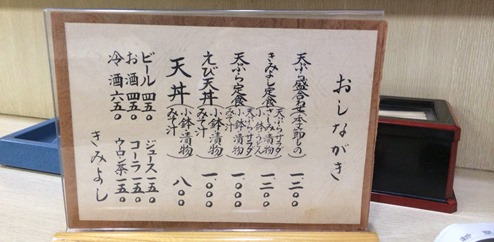 おしながき
天ぷら盛合わせ 一、三〇〇
きみよし定食 一、三〇〇
天ぷら定食 一、〇〇〇
(天ぷらサラダ
小鉢漬物
みそ汁)
えび天丼 一、〇〇〇
(小鉢漬物
みそ汁)
天丼 八〇〇
(小鉢漬物
みそ汁)
ビール 四五〇
お酒 四五〇
冷酒 六五〇
ジュース 一五〇
コーラ 一五〇
ウーロン茶 一五〇
きみよし